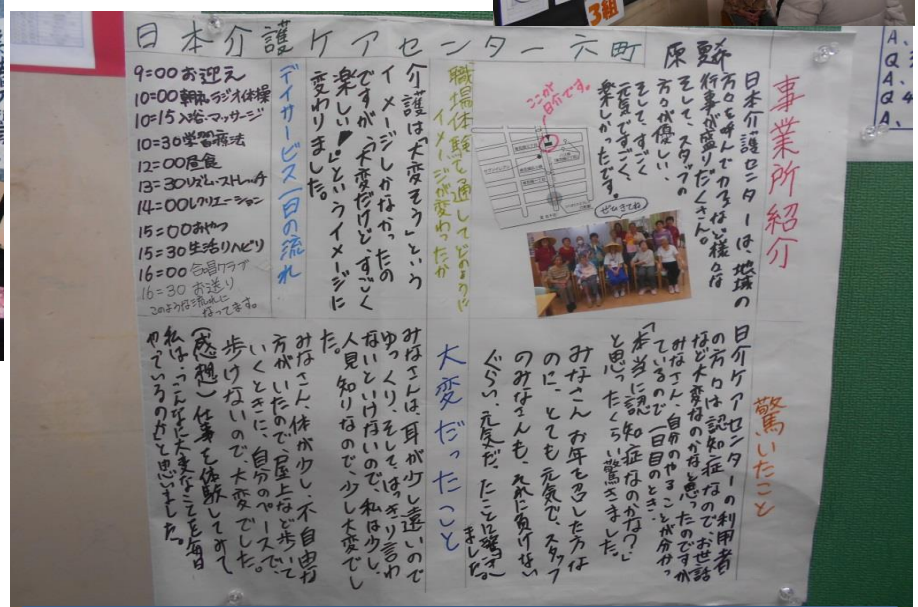 日本介護ケアセンター六町
事業所紹介
日本介護センターは、地域の
方々を呼んでカフェなど様々な
行事が盛りだくさん。
そして、スタッフの
方々が優しい、
そして、すごく
元気ですごく、
楽しかったです。
ここが
日介です。
ぜひきてね
職場体験を通してどのように
イメージが変わったか
介護は「大変そう」という
イメージしかなかったの
ですが、「大変だけど、すごく
楽しい!」というイメージに
変わりました。
デイサービス一日の流れ
9:00お迎え
10:00朝礼ラジオ体操
10:15入浴・マッサージ
10:30学習療法
12:00昼食
13:30リズム・ストレッチ
14:00レクリエーション
15:00おやつ
15:30生活リハビリ
16:00合唱クラブ
16:30お送り
このような流れに
なってます。
驚いたこと
日介ケアセンターの利用者
の方々は認知症なので、お世話
など大変なのかなと思ったのですが
みなさん、自分のやることが分かっ
ているので一日目のとき、
「本当に認知症なのかな?」
と思ったくらい驚きました。
みなさん、お年を召した方な
のに、とても元気で、スタッフ
のみなさんも、それに負けない
ぐらい、元気だったことに驚き
ました。
大変だったこと
みなさんは、耳が少し遠いので
ゆっくり、そして、はっきり言わ
ないといけないので、私は少し、
人見知りなので、少し大変でし
た。
みなさん、体が少し、不自由な
方がいたので、屋上など歩いて
いくときに、自分のペースで、
歩けないので、大変でした。
(感想)仕事を体験してみて
私は、こんなに大変なことを毎日
やっているのだと思いました。
3組
A、
Q
A、
Q4
A、